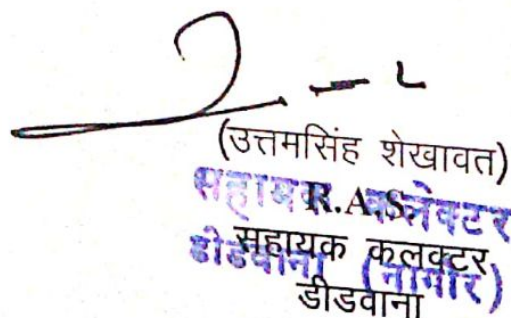 (उत्तमसिंह शेखावत)
R.A.S.
सहायक कलेक्टर
सहायक कलक्टर,
डीडवाना (नागौर)
डीडवाना